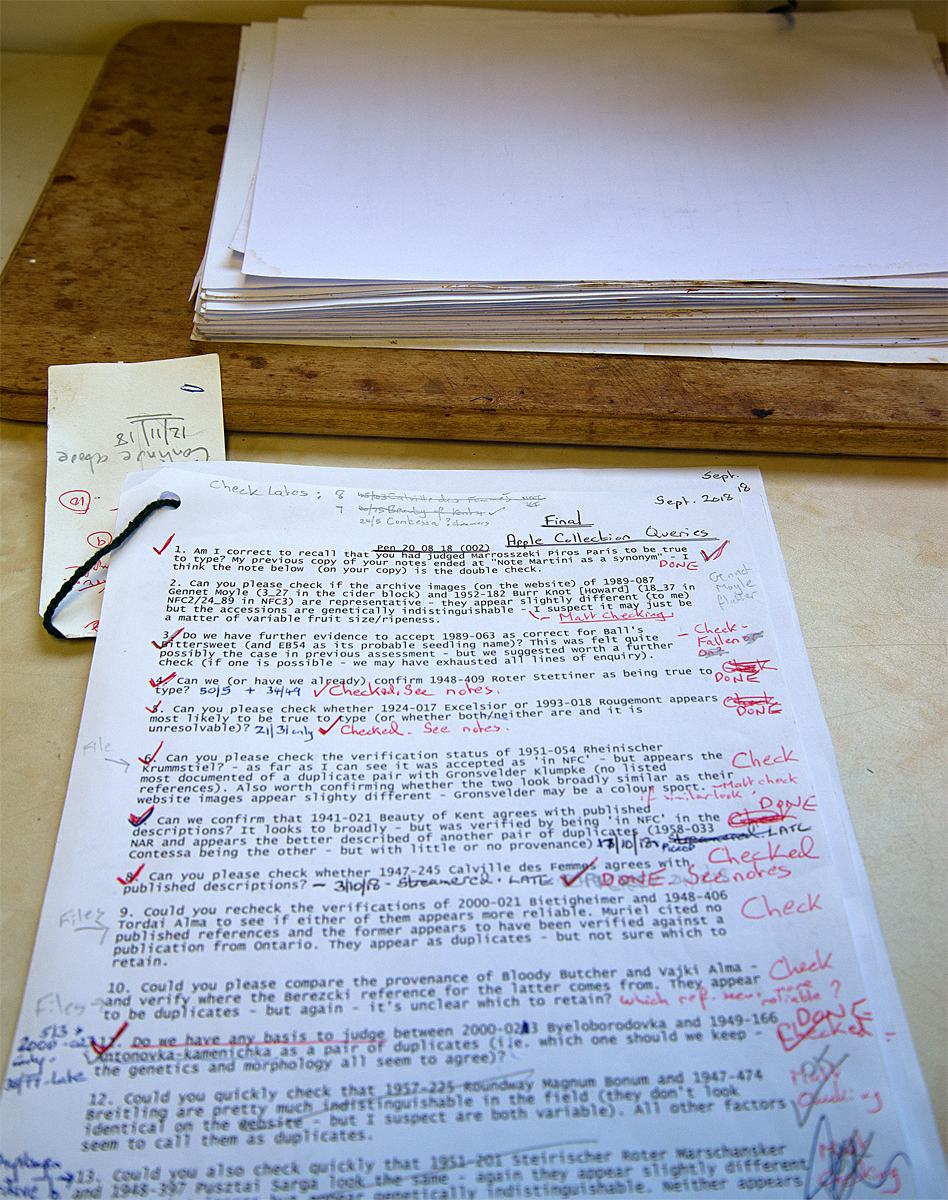 Continue above
12/11/18
12
b
Sept.
18
Sept. 2018
Check Lates: 8 45/03 Calville des Femmes
7 40/75 Beauty of Kent ✓
24/5 Contessa?
Final
Apple Collection Queries
Pen 20 08 18 (002)
1. Am I correct to recall that you had judged Marrosszeki Piros Paris to be true
to type? My previous copy of your notes ended at "Note Martini as a synonym" - I
think the note below (on your copy) is the double check.
DONE
2. Can you please check if the archive images (on the website) of 1989-087
Gennet Moyle (3_27 in the cider block) and 1952-182 Burr Knot [Howard] (18_37 in
NFC2/24_89 in NFC3) are representative - they appear slightly different (to me)
but the accessions are genetically indistinguishable - I suspect it may just be
a matter of variable fruit size/ripeness.
Matt Checking
Gennet
Moyle
flatter
3. Do we have further evidence to accept 1989-063 as correct for Ball's
Bittersweet (and EB54 as its probable seedling name)? This was felt quite
possibly the case in previous assessment - but we suggested worth a further
check (if one is possible - we may have exhausted all lines of enquiry).
- Check -
Fallen
4. Can we (or have we already) confirm 1948-409 Roter Stettiner as being true to
type? 50/5 + 34/49 ✓ Checked. See notes.
Check
DONE
5. Can you please check whether 1924-017 Excelsior or 1993-018 Rougemont appears
most likely to be true to type (or whether both/neither are and it is
unresolvable)? 21/31 only ✓ Checked. See notes.
Check
DONE
File
6. Can you please check the verification status of 1951-054 Rheinischer
Krummstiel? - as far as I can see it was accepted as 'in NFC' - but appears the
most documented of a duplicate pair with Gronsvelder Klumpke (no listed
references). Also worth confirming whether the two look broadly similar as their
website images appear slighty different - Gronsvelder may be a colour sport. - Matt check
if similar look.
Check
7. Can we confirm that 1941-021 Beauty of Kent agrees with published
descriptions? It looks to broadly - but was verified by being 'in NFC' in the
NAR and appears the better described of another pair of duplicates (1958-033
Contessa being the other - but with little or no provenance) 18/10/18 Picked Streamered LATE
DONE
Check
Checked
8. Can you please check whether 1947-245 Calville des Femmes agrees with
published descriptions? - 3/10/18 - Streamered. LATE ✓ DONE. See notes
Files
9. Could you recheck the verifications of 2000-021 Bietigheimer and 1948-406
Tordai Alma to see if either of them appears more reliable. Muriel cited no
published references and the former appears to have been verified against a
publication from Ontario. They appear as duplicates - but not sure which to
retain.
Check
Files
10. Could you please compare the provenance of Bloody Butcher and Vajki Alma -
and verify where the Berezcki reference for the latter comes from. They appear
to be duplicates - but again - it's unclear which to retain? which ref. was more
reliable?
Check
11. Do we have any basis to judge between 2000-023 Byeloborodovka and 1949-166
Antonovka-kamenichka as a pair of duplicates (i.e. which one should we keep -
the genetics and morphology all seem to agree)?
DONE
Checked
12. Could you quickly check that 1957-225 Roundway Magnum Bonum and 1947-474
Breitling are pretty much indistinguishable in the field (they don't look
identical on the website - but I suspect are both variable). All other factors
seem to call them as duplicates.
Matt
Checking
13. Could you also check quickly that 1951-201 Steirischer Roter Marschansker
and 1948-397 Pusztai Sarga look the same - again they appear slightly different
appear genetically indistinguishable. Neither appears
Matt
Checking